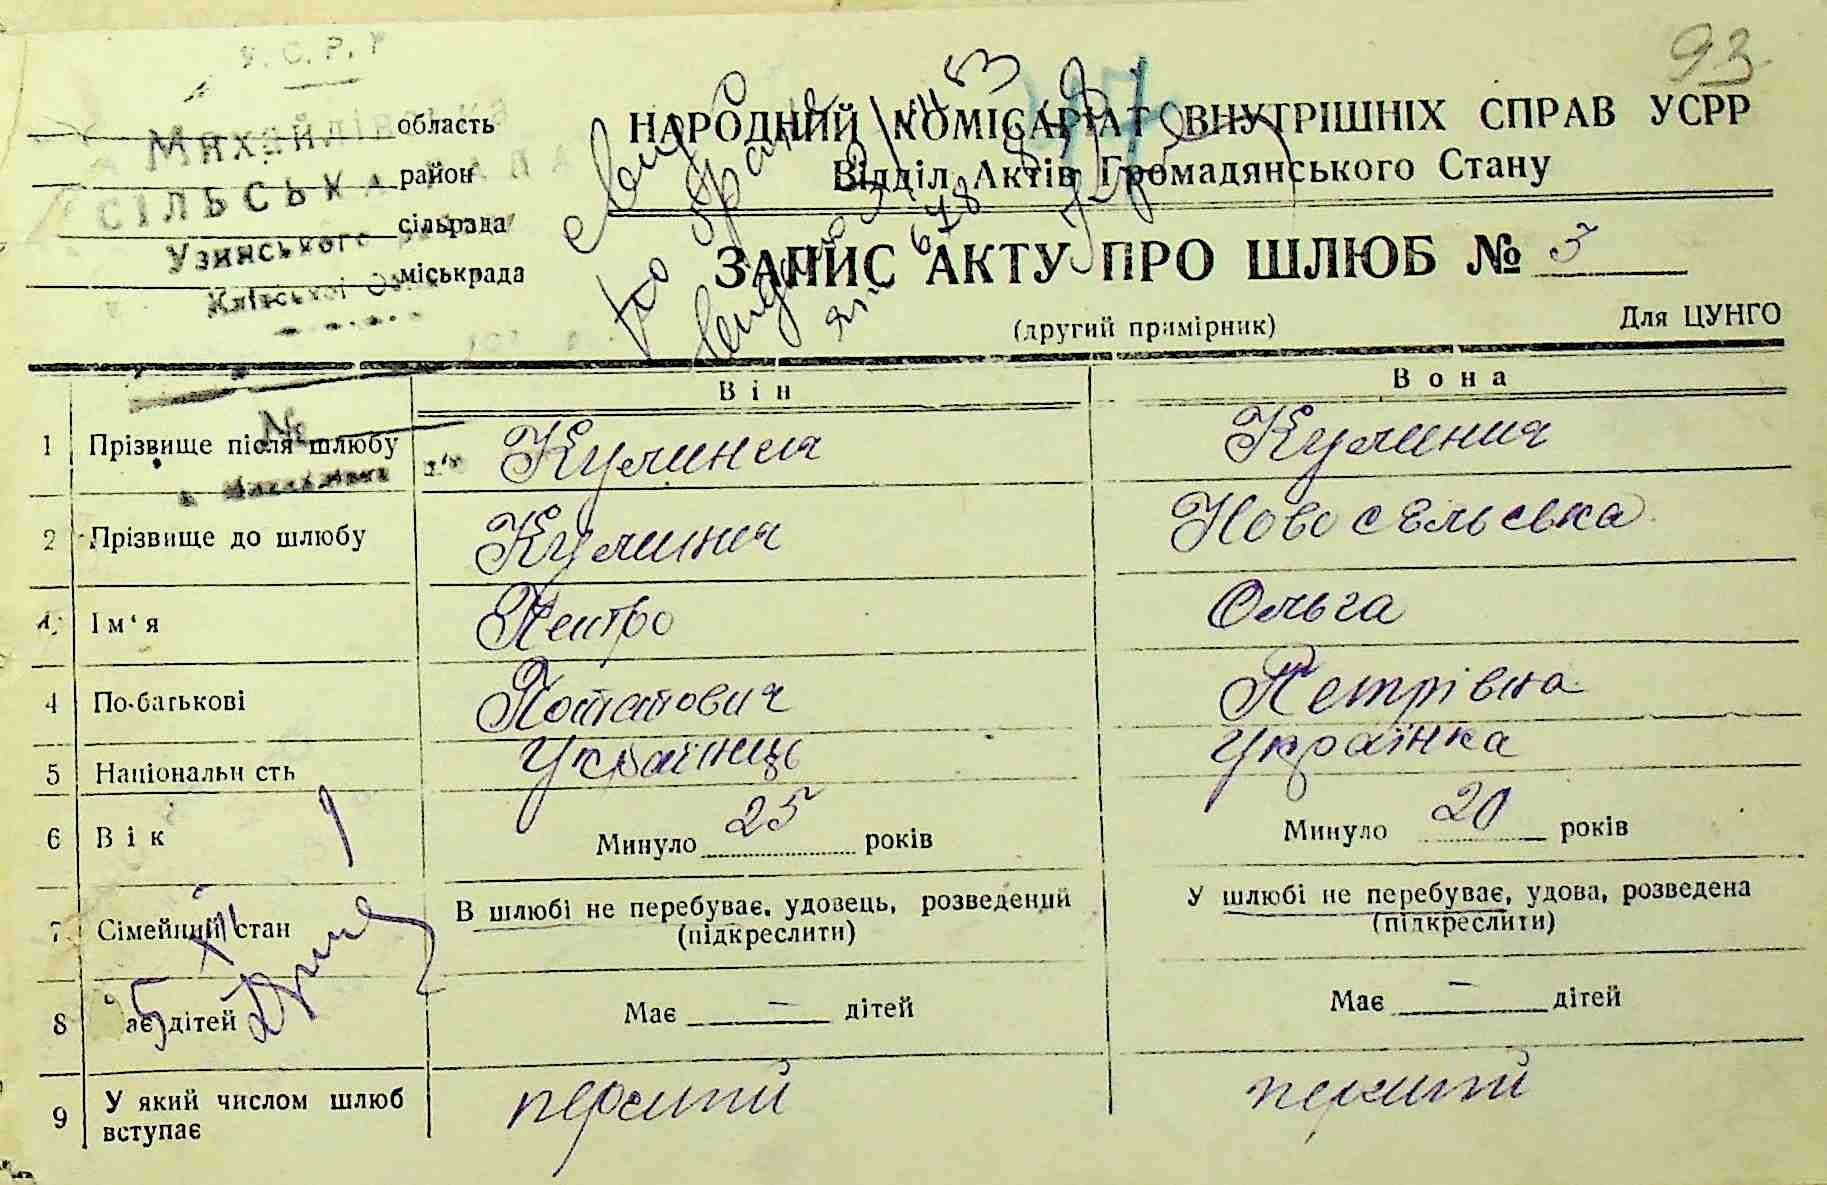 У.С.Р.Р
93
Михайлівська
область
НАРОДНИЙ КОМІСАРІАТ ВНУТРІШНІХ СПРАВ УСРР
район
Відділ Актів Громадянського Стану
СІЛЬСЬКА РАДА
сільрада
Узинського району
міськрада
ЗАПИС АКТУ ПРО ШЛЮБ № 5
Київської
(другий примірник)
Для ЦУНГО
Він
Вона
№
1 Прізвище після шлюбу Кулинич Кулинич
2 Прізвище до шлюбу Кулинич Новосельська
Ім'я Петро Ольга
4 По-батькові Потапович Петрівна
5 Національн сть Українець Українка
6 Вік Минуло 25 років Минуло 20 років
7 Сімейний стан В шлюбі не перебуває, удовець, розведений У шлюбі не перебуває, удова, розведена
(підкреслити) (підкреслити)
8 ає дітей Має — дітей Має — дітей
9 У який числом шлюб
вступає
перший перший